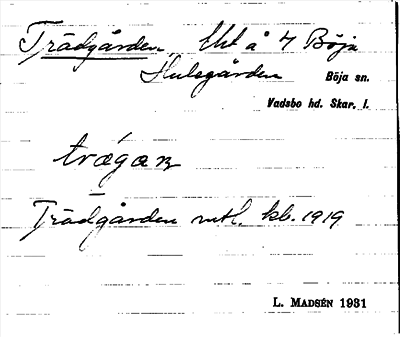 Trädgården, Utt å 4 Böja
Hulegården Böja sn.
Vadsbo hd. Skar. l.
trágaɴ
Trädgården mtl. kb. 1919
L. MADSÉN 1931